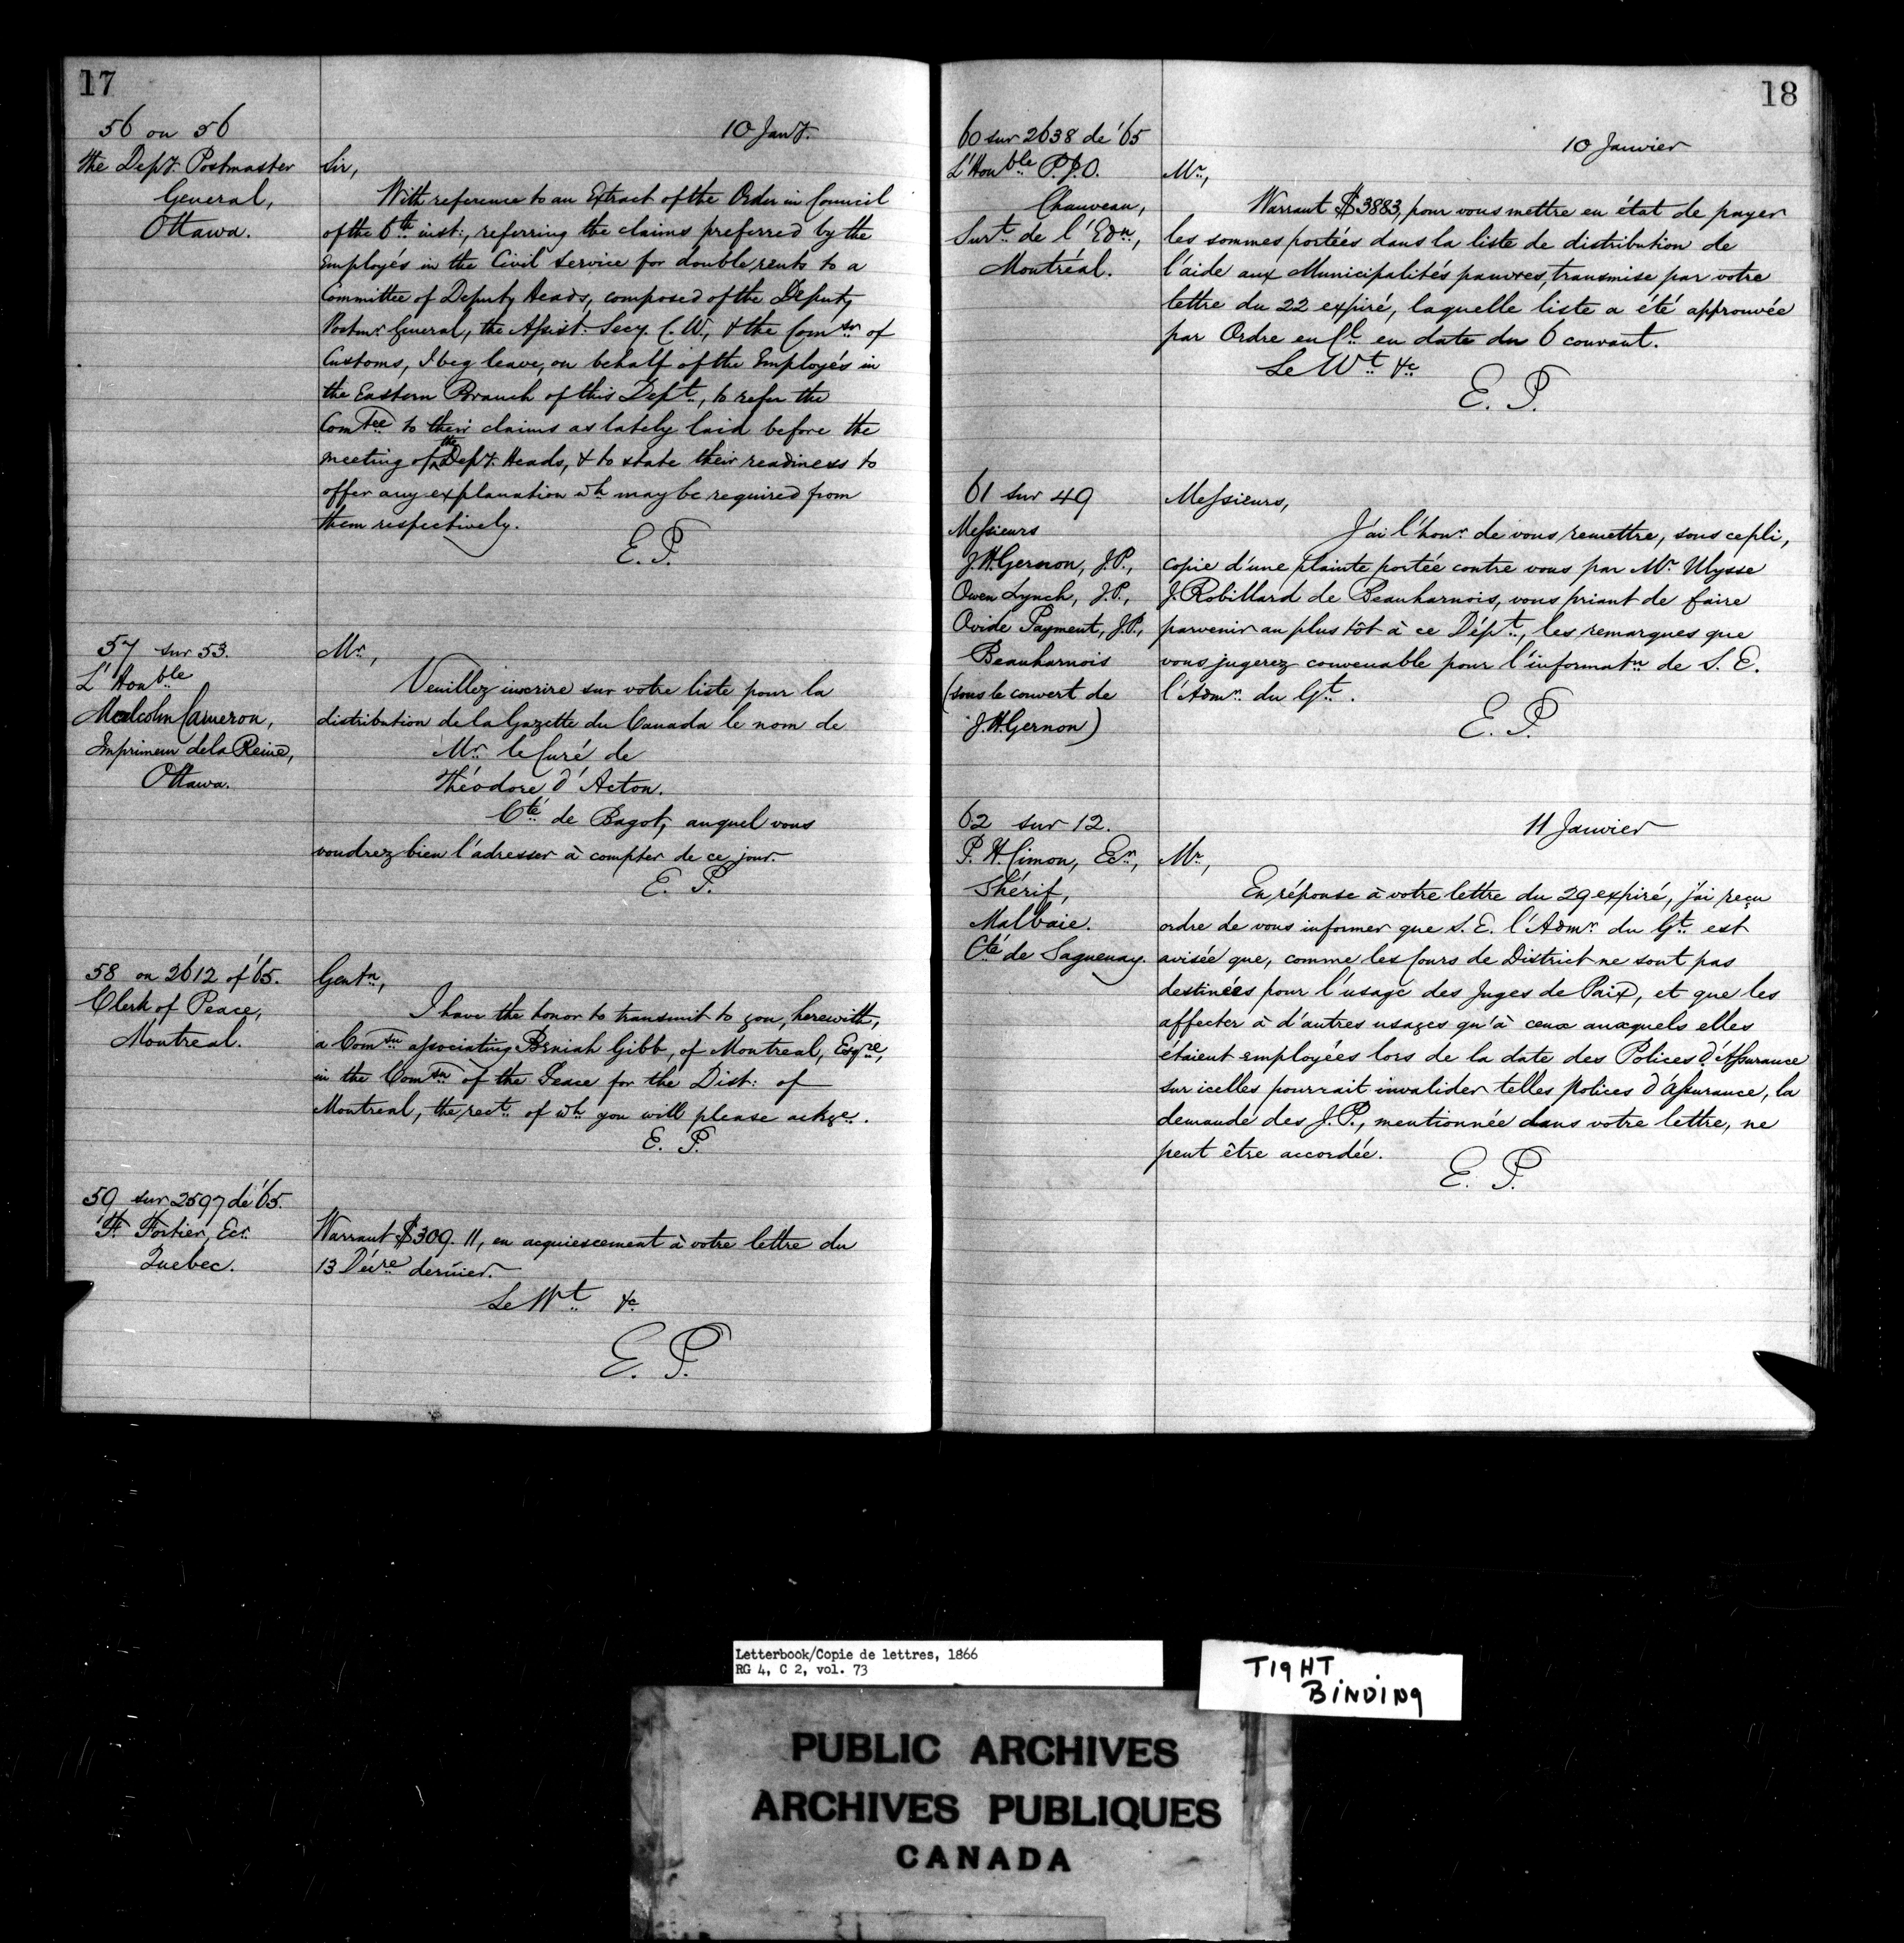 17
56 on 56
10 Jany.
The Depy. Postmaster
General,
Ottawa.
Sir,
With reference to an Extract of the Order in Council
of the 6th inst:, referring the claims preferred by the
Employés in the Civil Service for double rents to a
Committee of Deputy Heads, composed of the Deputy
Postmr. General, the Assist. Secy. C.W., & the Comsr. of
Customs, I beg leave, on behalf of the Employés in
the Eastern Branch of this Dept., to refer the
Comtee to their claims as lately laid before the
meeting of the Depy. Heads, & to state their readiness to
offer any explanation wh. may be required from
them respectively.
E. P.
57 sur 53.
L'Honble
Malcolm Cameron,
Imprimeur de la Reine,
Ottawa.
Mr.,
Veuillez inscrire sur votre liste pour la
distribution de la Gazette du Canada le nom de
Mr. le Curé de
Théodore d'Acton.
Cté de Bagot, auquel vous
voudrez bien l'adresser à compter de ce jour.
E. P.
58 on 2612 of '65.
Clerk of Peace,
Montreal.
Gentn.,
I have the honor to transmit to you, herewith,
a Comsn. associating Beniah Gibb, of Montreal, Esqre,
in the Comsn. of the Peace for the Dist: of
Montreal, the rect. of wh. you will please ackge.
E. P.
59 sur 2597 de '65.
F. Fortier, Ecr.
Quebec.
Warrant $309.11, en acquiescement à votre lettre du
13 Décre dernier.
Le Wt. &c
E. P.
18
60 sur 2638 de '65
10 Janvier
L'Honble P.J.O.
Chauveau,
Surt. de l'Edn.,
Montréal.
Mr.,
Warrant $3883, pour vous mettre en état de payer
les sommes portées dans la liste de distribution de
l'aide aux Municipalités pauvres, transmise par votre
lettre du 22 expiré, laquelle liste a été approuvée
par Ordre en Cl. en date du 6 courant.
Le Wt. &c
E. P.
61 sur 49
Messieurs
J.H. Gernon, J.P.,
Owen Lynch, J.P.,
Ovide Payment, J.P.,
Beauharnois
(sous le couvert de
J.H. Gernon)
Messieurs,
J'ai l'honr. de vous remettre, sous ce pli,
copie d'une plainte portée contre vous par Mr. Ulysse
J. Robillard de Beauharnois, vous priant de faire
parvenir au plus tôt à ce Dépt., les remarques que
vous jugerez convenable pour l'informatn. de S. E.
l'Admr. du Gt.
E. P.
62 sur 12.
11 Janvier
P. H. Cimon, Ecr.,
Shérif,
Malbaie.
Cté de Saguenay.
Mr.,
En réponse à votre lettre du 29 expiré, j'ai reçu
ordre de vous informer que S. E. l'Admr. du Gt. est
avisée que, comme les Cours de District ne sont pas
destinées pour l'usage des Juges de Paix, et que les
affecter à d'autres usages qu'à ceux auxquels elles
étaient employées lors de la date des Polices d'Assurance
sur icelles pourrait invalider telles Polices d'Assurance, la
demande des J.P., mentionnée dans votre lettre, ne
peut être accordée.
E. P.
Letterbook/Copie de lettres, 1866
RG 4, C 2, vol. 73
TIGHT
BINDING
PUBLIC ARCHIVES
ARCHIVES PUBLIQUES
CANADA